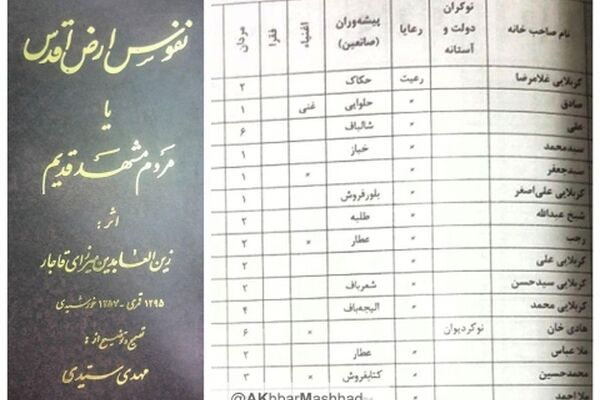 نفوس ارض اقدس
یا
مردم مشهد قدیم
اثر:
زین العابدین میرزای قاجار
۱۲۹۵ قمری - ۱۲۵۷ خورشیدی
تصحیح و توضیح از:
مهدی سیدی
نام صاحب خانه نوکران دولت و آستانه رعایا پیشه‌وران (صانعین) اغنیاء فقرا مردان
کربلایی غلامرضا رعیت حکاک ۲
صادق ״ حلوایی غنی ۱
علی ״ شالباف ۶
سیدمحمد ״ خباز ۱
سیدجعفر ״ × ۱
کربلایی علی‌اصغر ״ بلورفروش ۱
شیخ عبدالله ״ طلبه ۲
رجب ״ عطار × ۲
کربلایی علی ״ ۲
کربلایی سیدحسن ״ شعرباف ۲
کربلایی محمد ״ الیجه‌باف ۴
هادی خان نوکردیوان × ۶
ملا عباس ״ عطار ۲
محمدحسین ״ کتابفروش × ۳
ملا احمد ״
@AKhbarMashhad